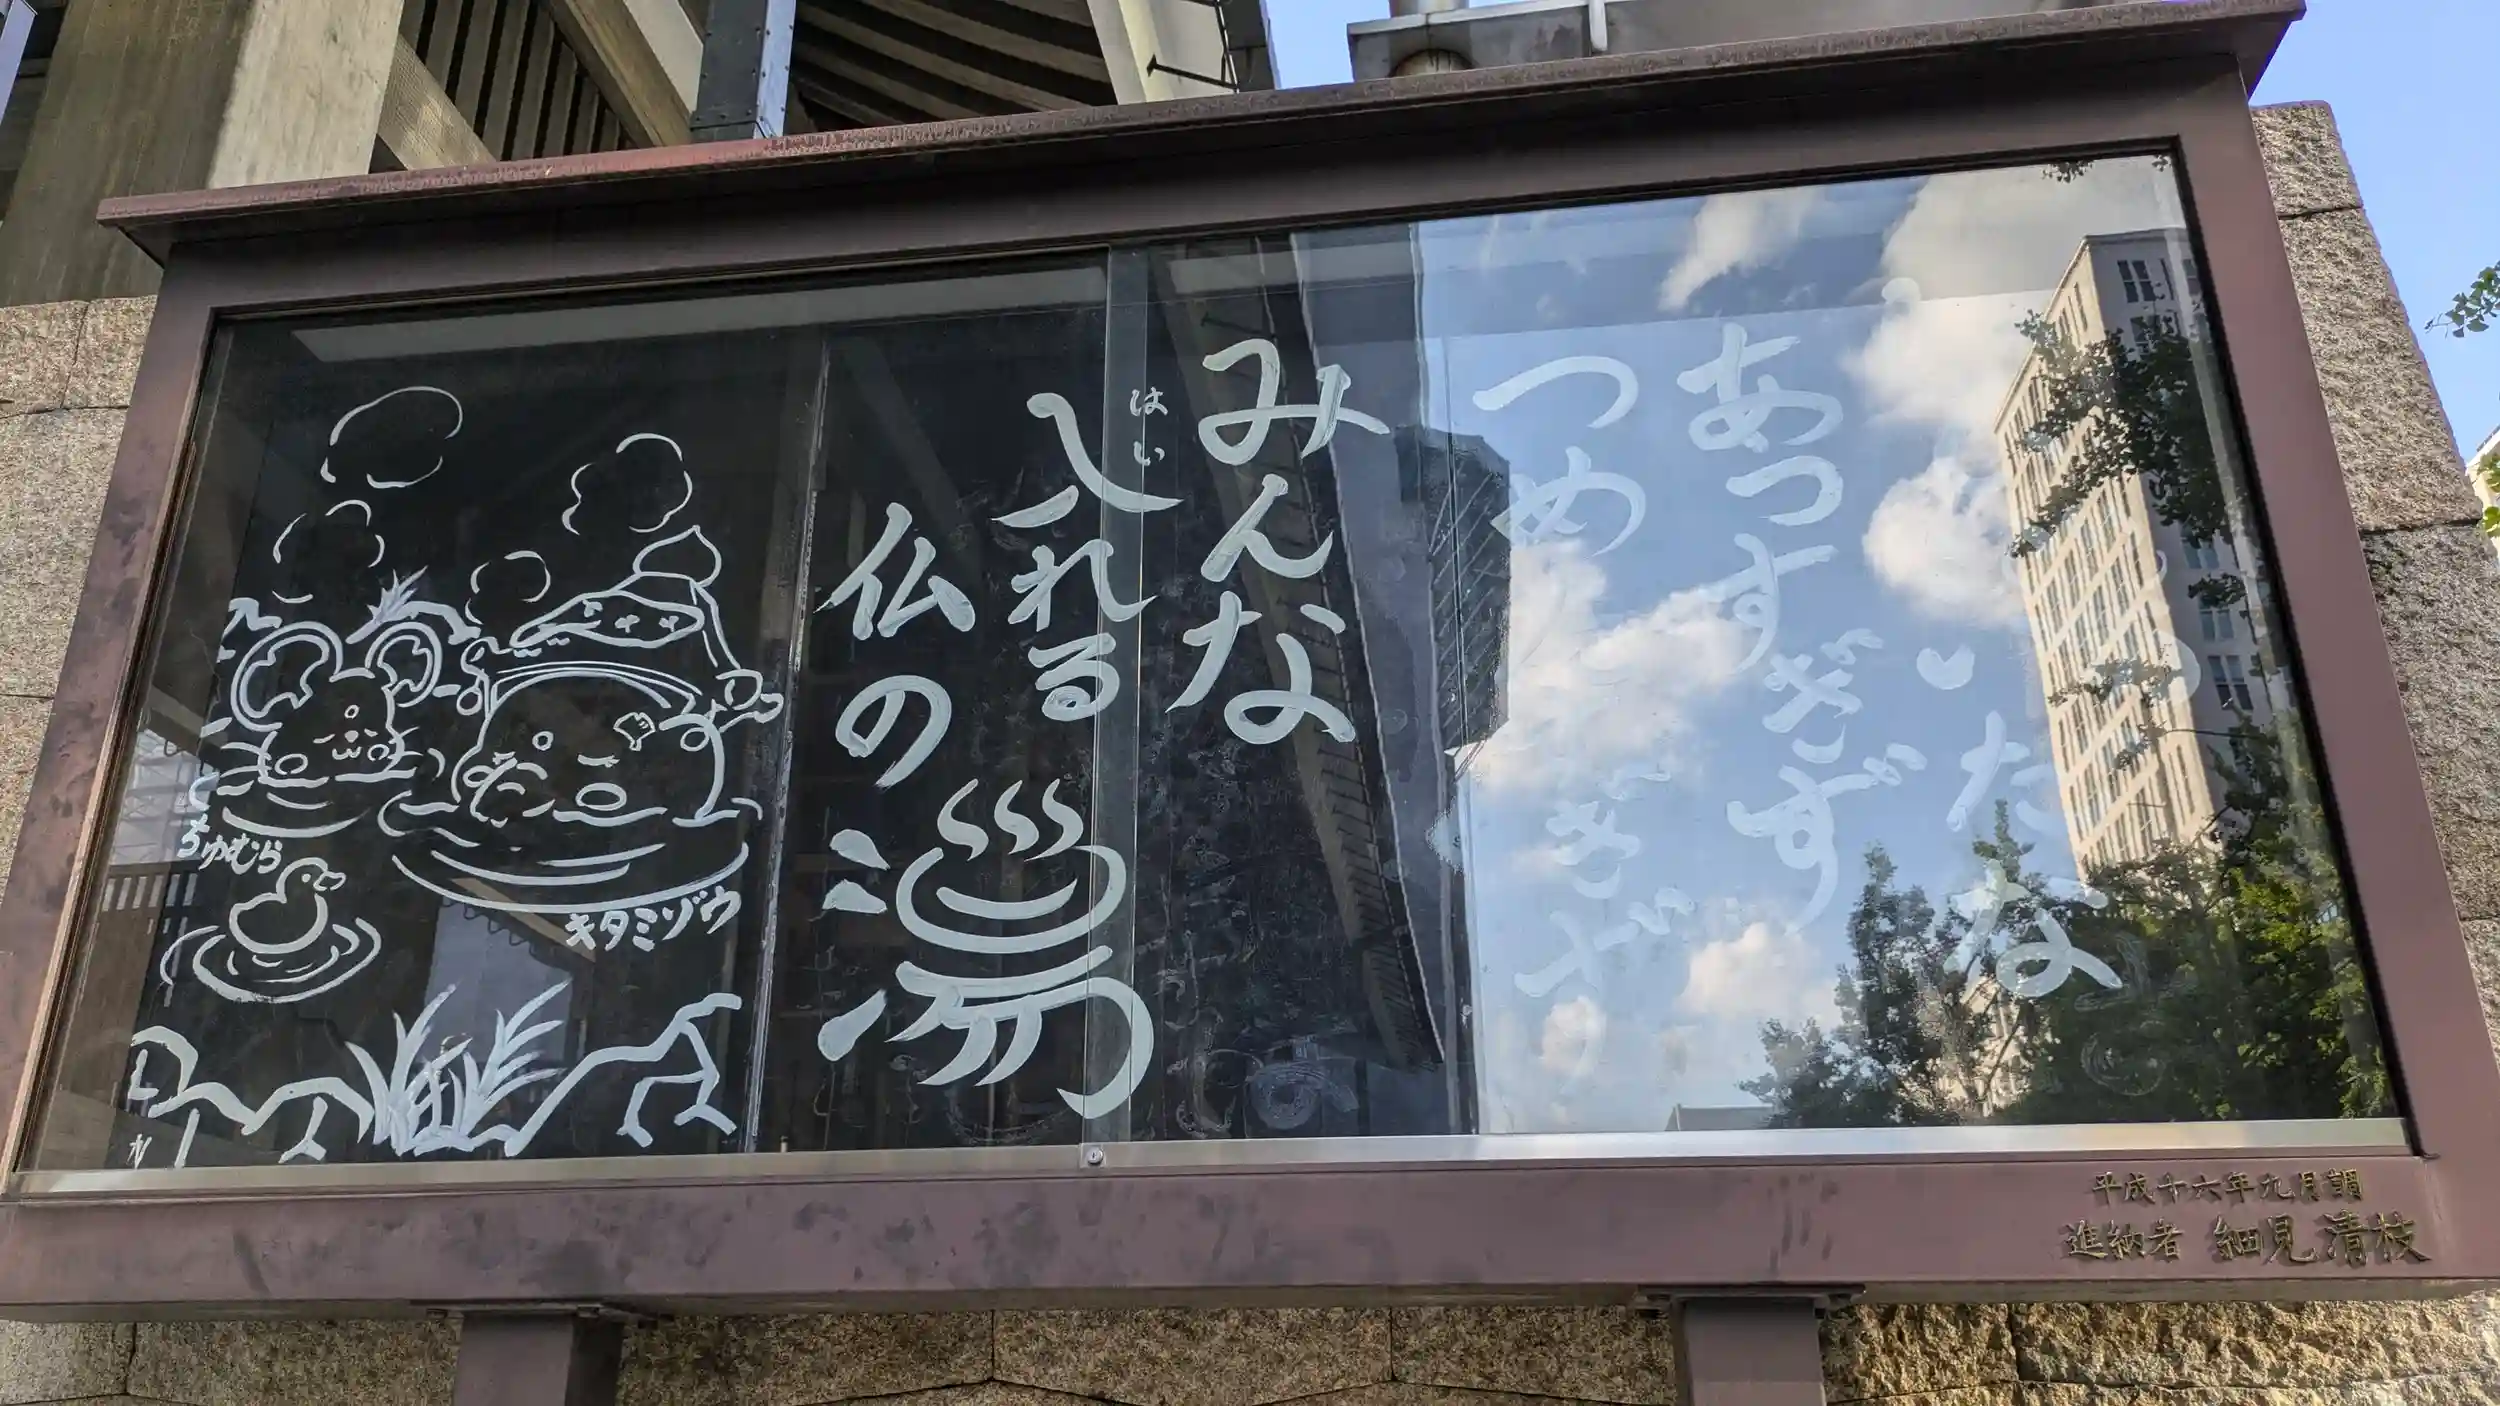 あつすぎず
つめ
すぎず
みんな
入れる
はい
仏の湯
ちゅむら
キタミゾウ
平成十六年九月調
進納者 細見清枝